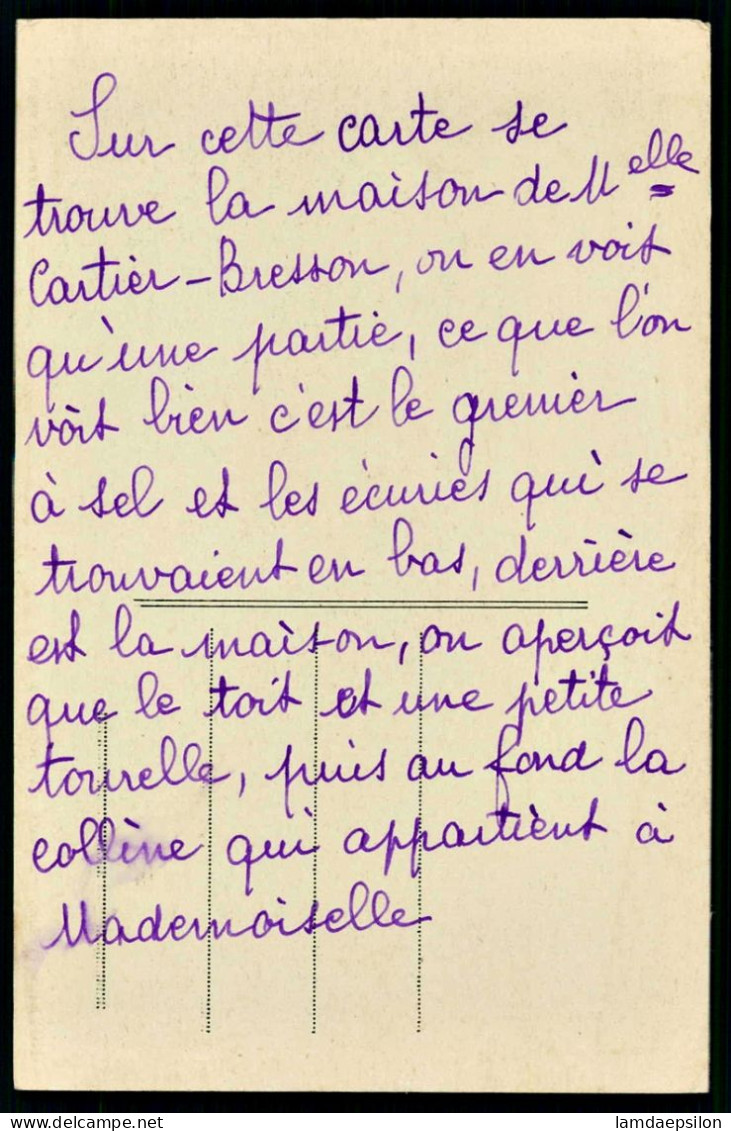 Sur cette carte se
trouve la maison de Melle
Cartier-Bresson, on en voit
qu'une partie, ce que l'on
voit bien c'est le grenier
à sel et les écuries qui se
trouvaient en bas, derrière
est la maison, on aperçoit
que le toit et une petite
tourelle, puis au fond la
colline qui appartient à
Mademoiselle
delcampe.net
lamdaepsilon